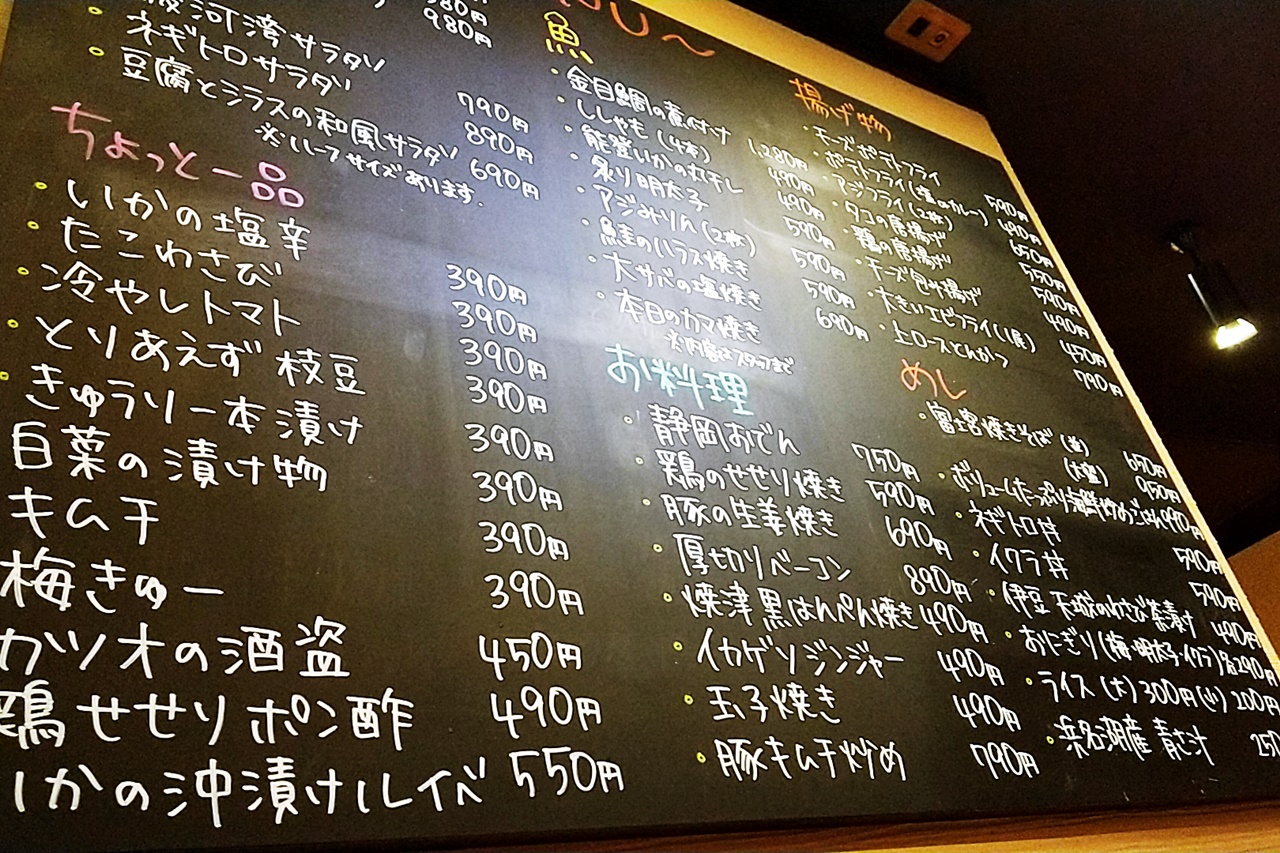 980円
河湾サラダ
ネギトロサラダ 790円
豆腐とシラスの和風サラダ 890円
※ハーフサイズあります。 690円
ちょっと一品
いかの塩辛 390円
たこわさび 390円
冷やしトマト 390円
とりあえず枝豆 390円
きゅうり一本漬け 390円
白菜の漬け物 390円
キムチ 390円
梅きゅー 390円
カツオの酒盗 450円
鶏せせりポン酢 490円
いかの沖漬けルイベ 550円
NU〜
魚
金目鯛の煮付け 1,280円
ししゃも(4本) 490円
能登いかの丸干し 490円
炙り明太子 590円
アジみりん(2枚) 590円
鮭のハラス焼き 590円
大サバの塩焼き 690円
本日のカマ焼き
※内容はスタッフまで
お料理
静岡おでん 750円
鶏のせせり焼き 590円
豚の生姜焼き 690円
厚切りベーコン 890円
焼津黒はんぺん焼き 490円
イカゲソジンジャー 490円
玉子焼き 490円
豚キムチ炒め 790円
揚げ物
チーズポテトフライ 590円
ポテトフライ(塩orカレー) 490円
アジフライ(2枚) 650円
タコの唐揚げ 550円
鶏の唐揚げ 590円
チーズ包み揚げ 490円
大きいエビフライ(1尾) 450円
上ロースとんかつ 790円
めし
富士宮焼きそば(並) 650円
(大盛) 950円
ボリュームたっぷり海鮮炒めごはん 990円
ネギトロ丼 590円
イクラ丼 590円
伊豆天城のわさび茶漬け 490円
おにぎり(梅・明太子・イクラ)各290円
ライス(大)300円(小)200円
浜名湖産青さ汁 250